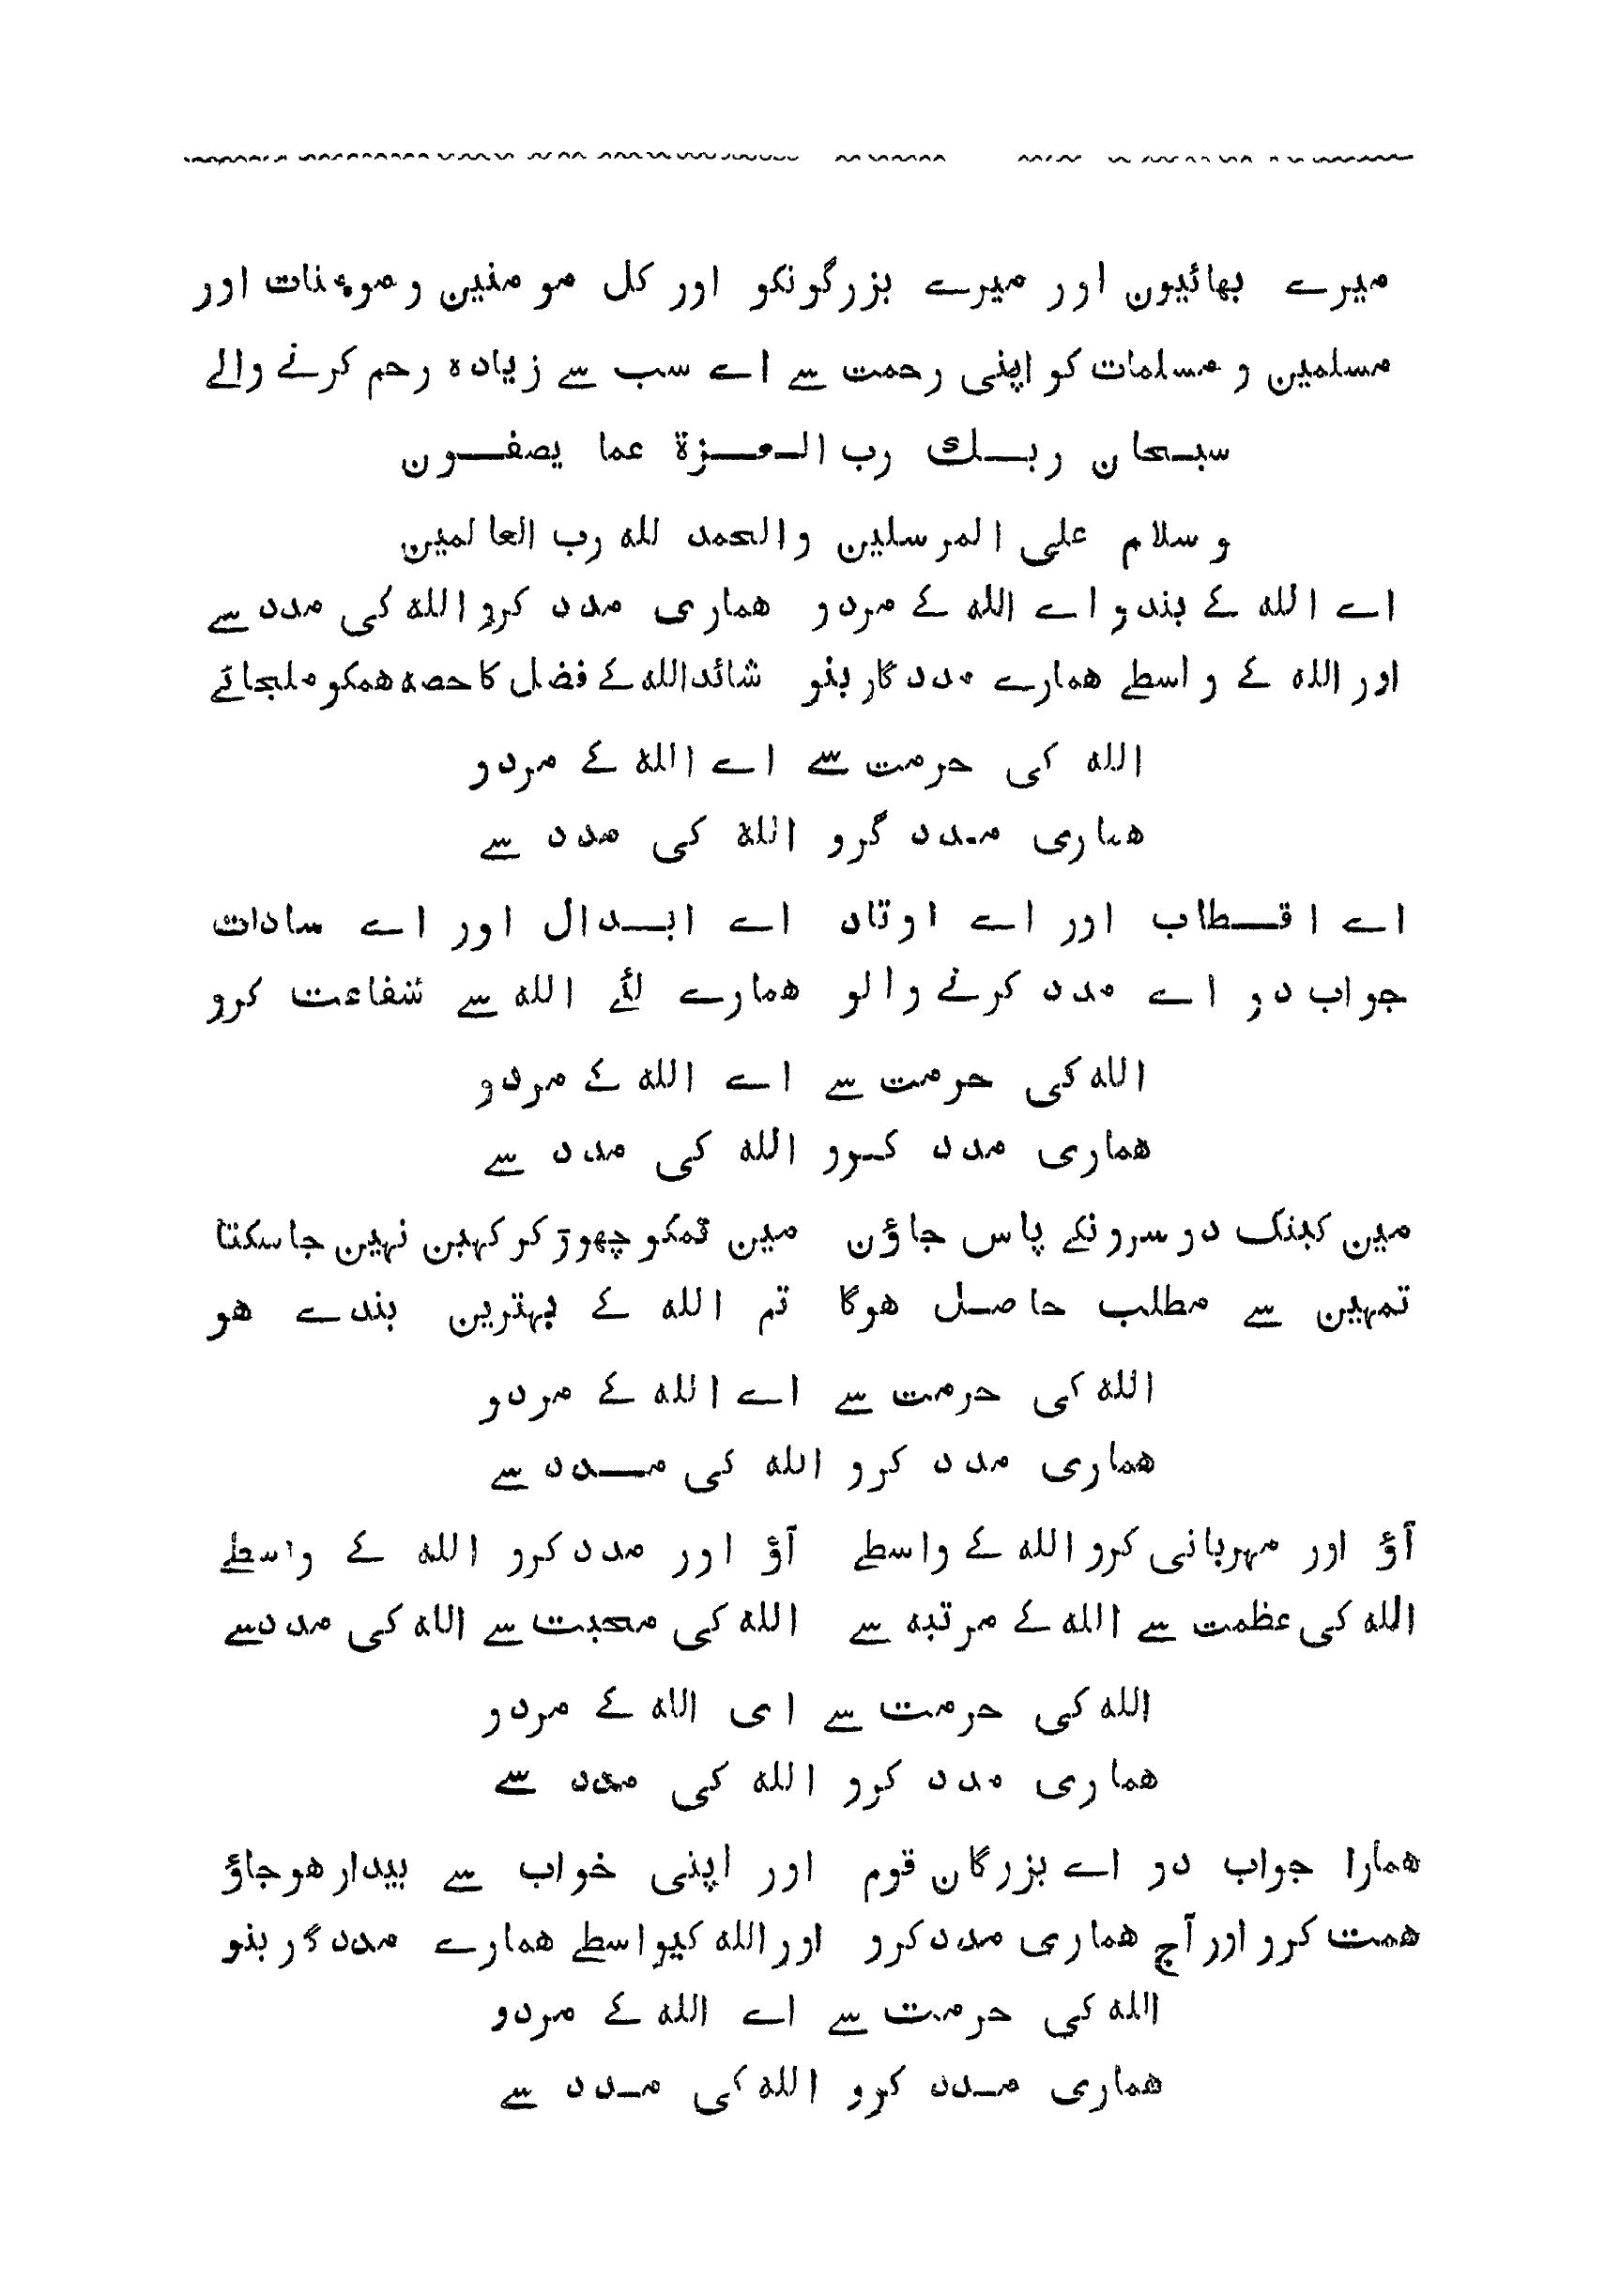 میرے بھائیون اور میرے بزرگونکو اور کل مومنین و مومنات اور
مسلمین و مسلمات کو اپنی رحمت سے اے سب سے زیادہ رحم کرنے والے
سبحان ربك رب العزة عما يصفون
و سلام على المرسلين والحمد لله رب العالمين
اے الله کے بندو اے الله کے مردو ھماری مدد کرو الله کی مدد سے
اور الله کے واسطے ھمارے مددگار بنو شائد الله کے فضل کا حصه ھمکو ملجائے
الله کی حرمت سے اے الله کے مردو
ھماری مدد گرو الله کی مدد سے
اے اقطاب اور اے اوتاد اے ابدال اور اے سادات
جواب دو اے مدد کرنے والو ھمارے لئے الله سے شفاعت کرو
الله کی حرمت سے اے الله کے مردو
ھماری مدد کرو الله کی مدد سے
مین کبتک دوسرونکے پاس جاؤن مین تمکو چھوڑ کر کہین نہین جاسکتا
تمہین سے مطلب حاصل ھوگا تم الله کے بہترین بندے ھو
الله کی حرمت سے اے الله کے مردو
ھماری مدد کرو الله کی مدد سے
آؤ اور مہربانی کرو الله کے واسطے آؤ اور مدد کرو الله کے واسطے
الله کی عظمت سے الله کے مرتبه سے الله کی محبت سے الله کی مدد سے
الله کی حرمت سے ای الله کے مردو
ھماری مدد کرو الله کی مدد سے
ھمارا جواب دو اے بزرگان قوم اور اپنی خواب سے بیدار ھوجاؤ
ھمت کرو اور آج ھماری مدد کرو اور الله کیواسطے ھمارے مددگر بنو
الله کی حرمت سے اے الله کے مردو
ھماری مدد کرو الله کی مدد سے